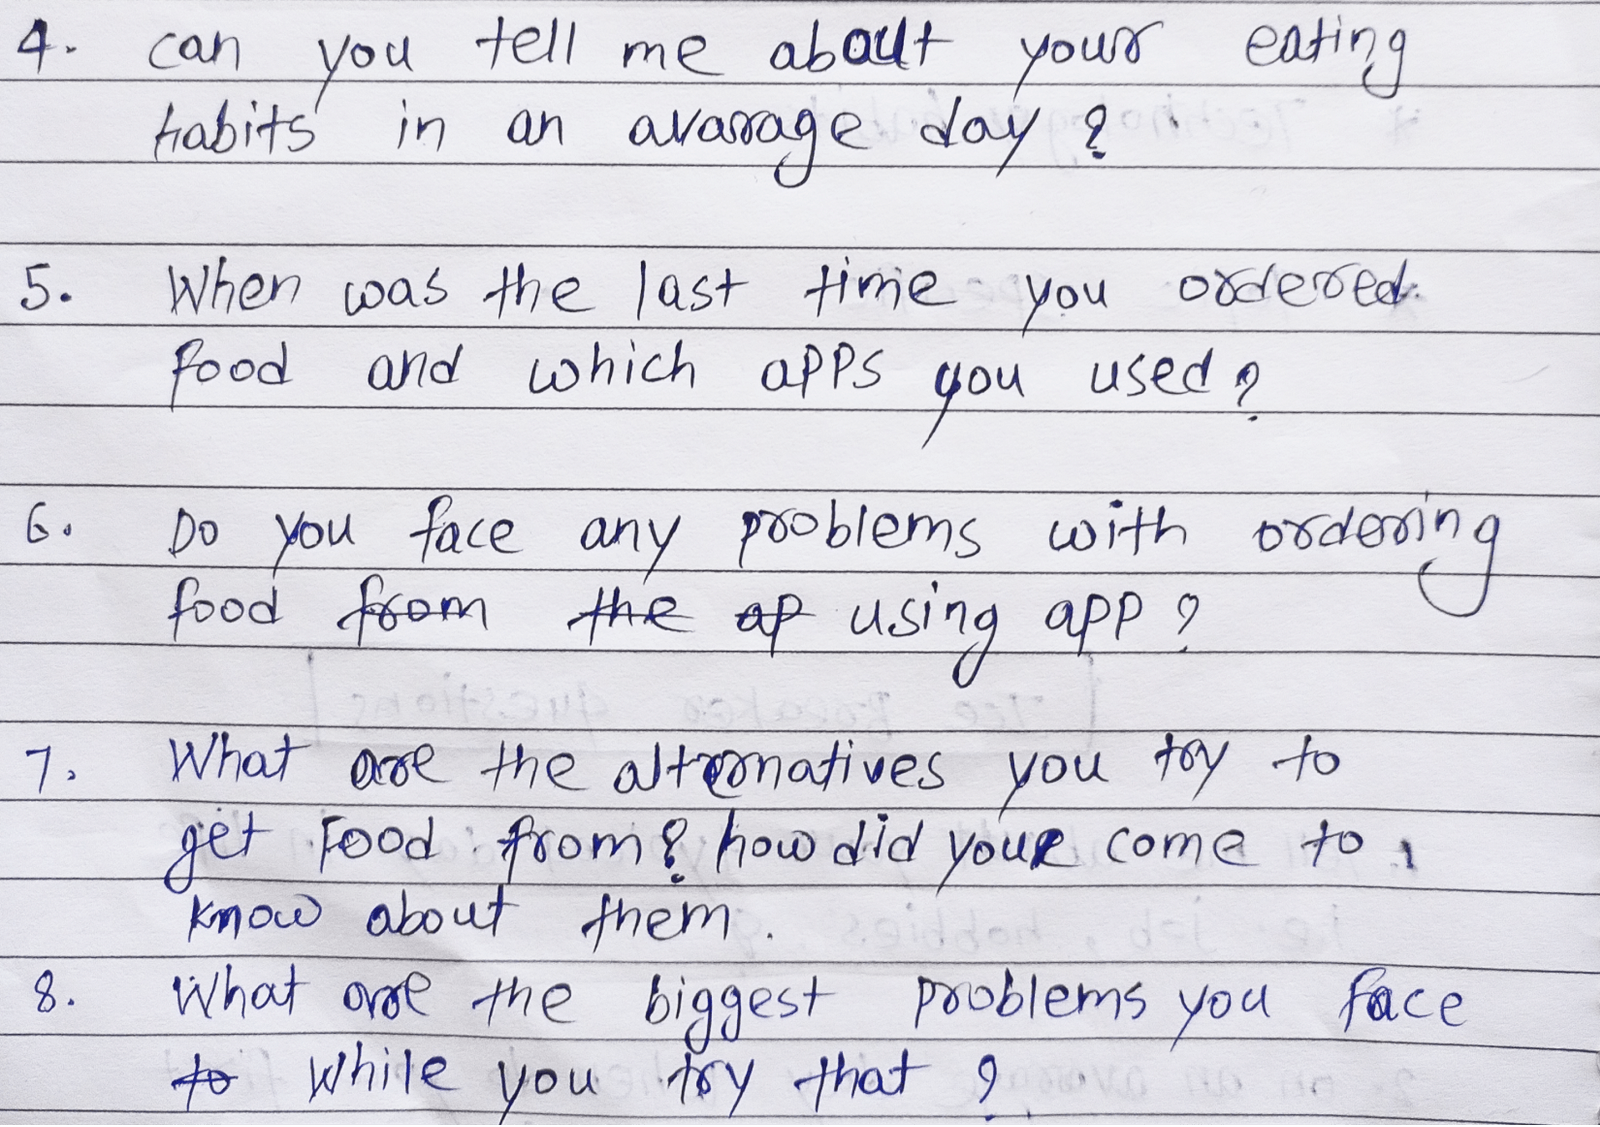 4. can you tell me about your eating
habits in an avarage day ?
5. When was the last time you ordered
food and which apps you used ?
6. Do you face any problems with ordering
food from the ap using app ?
7. What are the alternatives you try to
get food from ? how did you come to
know about them.
8. What are the biggest problems you face
to while you try that ?